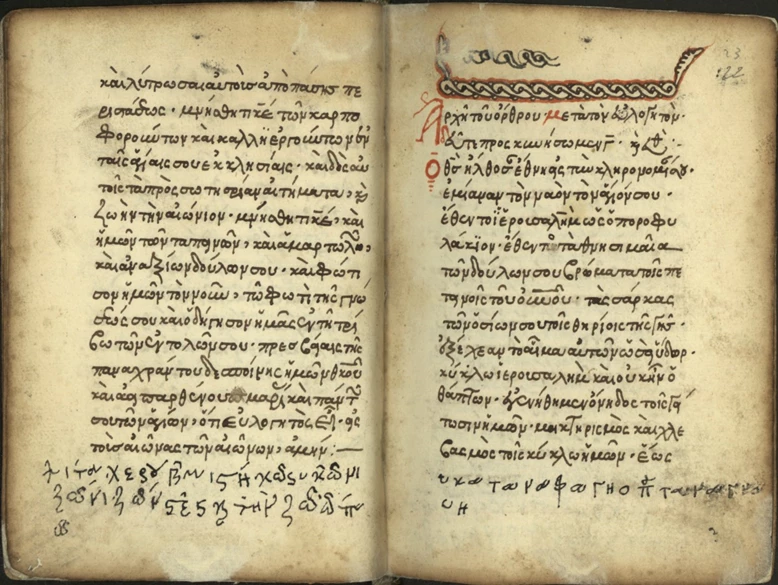 καὶ λύτρωσαι αὐτοὺς ἀπὸ πάσης πε
ριστάσεως · μνήσθητι κε τῶν καρπο
φορούντων καὶ καλλιεργούντων ἐν
ταῖς ἁγίαις σου ἐκκλησίαις · καὶ δὸς αὐ
τοῖς τὰ πρὸς σωτηρίαν αἰτήματα, κ
ζωὴν τὴν αἰώνιον · μνήσθητι κε, καὶ
ἡμῶν τῶν ταπεινῶν, καὶ ἁμαρτωλῶν,
καὶ ἀναξίων δούλων σου · καὶ φώτι
σον ἡμῶν τὸν νοῦν, τῷ φωτὶ τῆς γνώ
σεώς σου καὶ ὁδήγησον ἡμᾶς ἐν τῇ τρί
βῳ τῶν ἐντολῶν σου · πρεσβείαις τῆς
παναχράντου δεσποίνης ἡμῶν θκου
καὶ ἀειπαρθένου μαρίας καὶ πάντων
σου τῶν ἁγίων, ὅτι εὐλογητὸς εἶ · εἰς
τοὺς αἰῶνας τῶν αἰώνων, ἀμήν :—
23
122
Ἀρχὴ τοῦ ὄρθρου μετὰ τὸν εὐλογητόν ·
δεῦτε προσκυνήσωμεν γ ·
Ὁ θς ἤλθοσαν ἔθνη εἰς τὴν κληρονομίαν σου ·
ἐμίαναν τὸν ναὸν τὸν ἅγιόν σου ·
ἔθεντο ἱερουσαλὴμ ὡς ὀποροφυ
λάκιον · ἔθεντο τὰ θνησιμαῖα
τῶν δούλων σου βρώματα τοῖς πε
τεινοῖς τοῦ οὐνου · τὰς σάρκας
τῶν ὁσίων σου τοῖς θηρίοις τῆς γῆς ·
ἐξέχεαν τὸ αἷμα αὐτῶν ὡσεὶ ὕδωρ ·
κύκλῳ ἱερουσαλὴμ καὶ οὐκ ἦν ὁ
θάπτων · ἐγενήθημεν ὄνειδος τοῖς γεί
τοσιν ἡμῶν · μυκτηρισμὸς καὶ χλε
βασμὸς τοῖς κύκλῳ ἡμῶν · ἕως